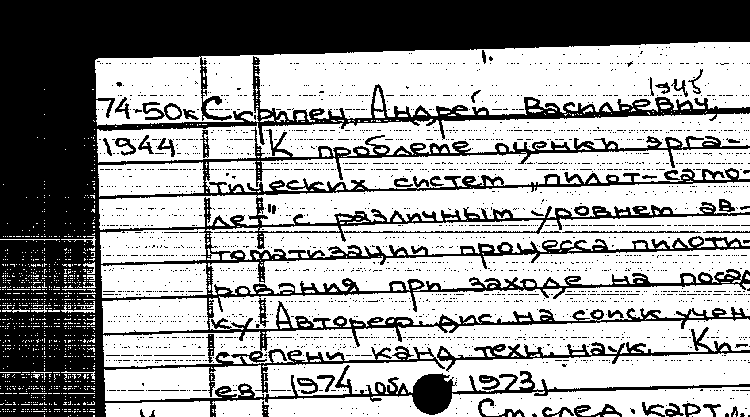 1945
74-50к Скрипец, Андрей Васильевич,
1944 К проблеме оценки эрга-
тических систем „пилот-само-
лет" с различным уровнем ав-
томатизации процесса пилоти-
рования при заходе на посад
ку. Автореф. дис. на соиск учен
степени канд. техн. наук. Ки-
ев 1974. [обл 1973].
См. след. карт.